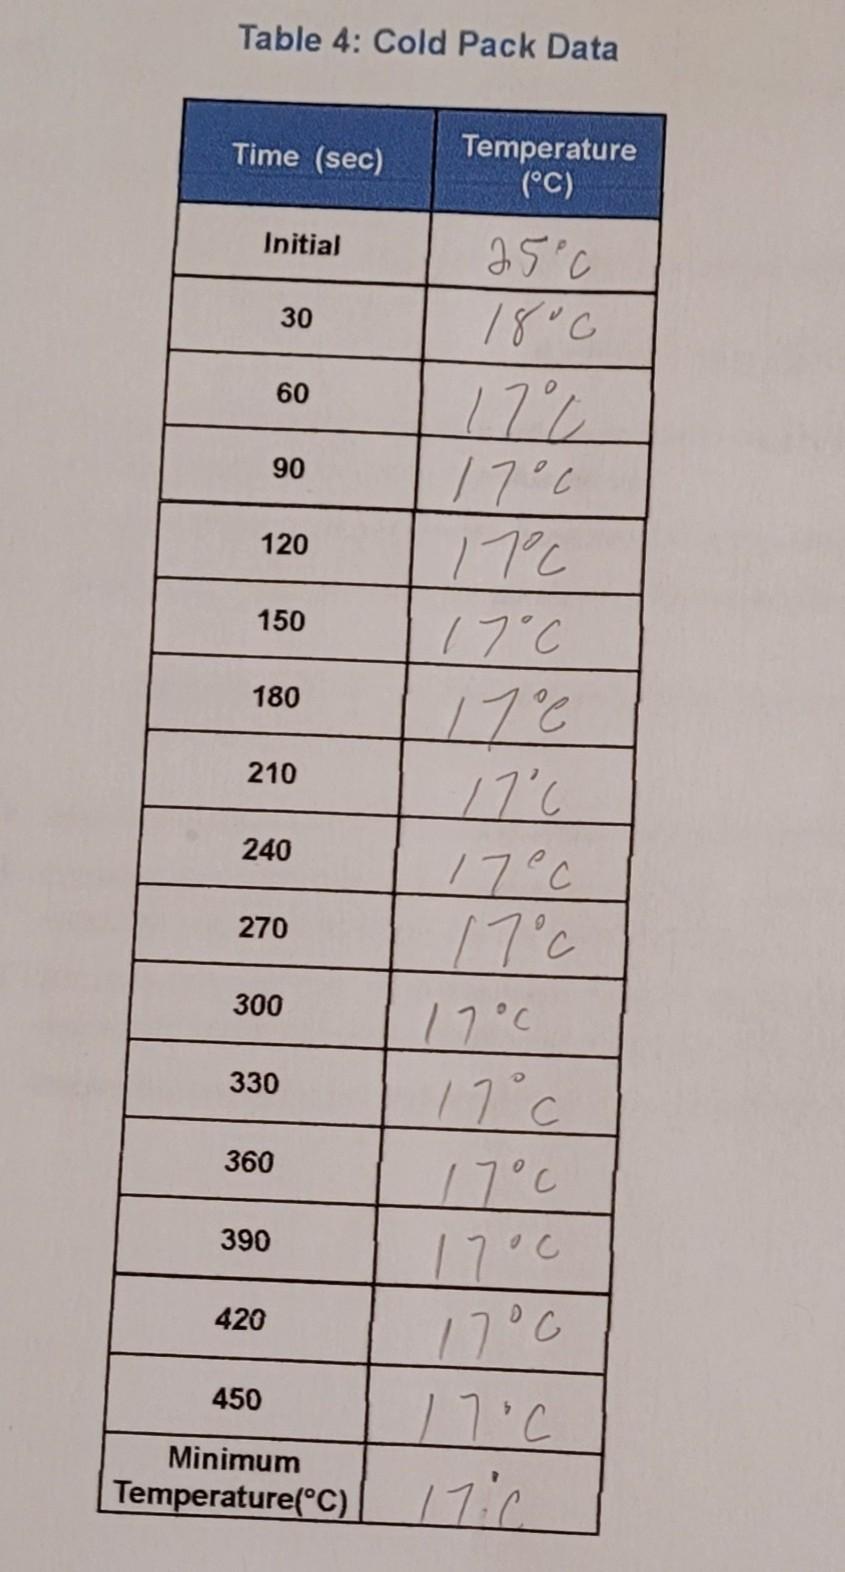 Table 4: Cold Pack Data
Time (sec) Temperature (°C)
Initial 25°C
30 18°C
60 17°C
90 17°C
120 17°C
150 17°C
180 17°C
210 17°C
240 17°C
270 17°C
300 17°C
330 17°C
360 17°C
390 17°C
420 17°C
450 17°C
Minimum Temperature(°C) 17°C